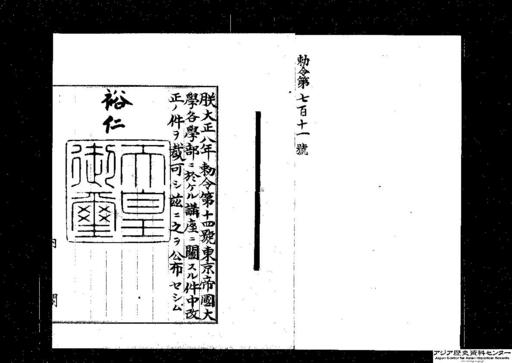 勅令第七百十一號
朕大正八年勅令第十四號東京帝國大
學各學部ニ於ケル講座ニ關スル件中改
正ノ件ヲ裁可シ玆ニ之ヲ公布セシム
裕仁
天皇御璽
内閣
アジア歴史資料センター
Japan Center for Asian Historical Records